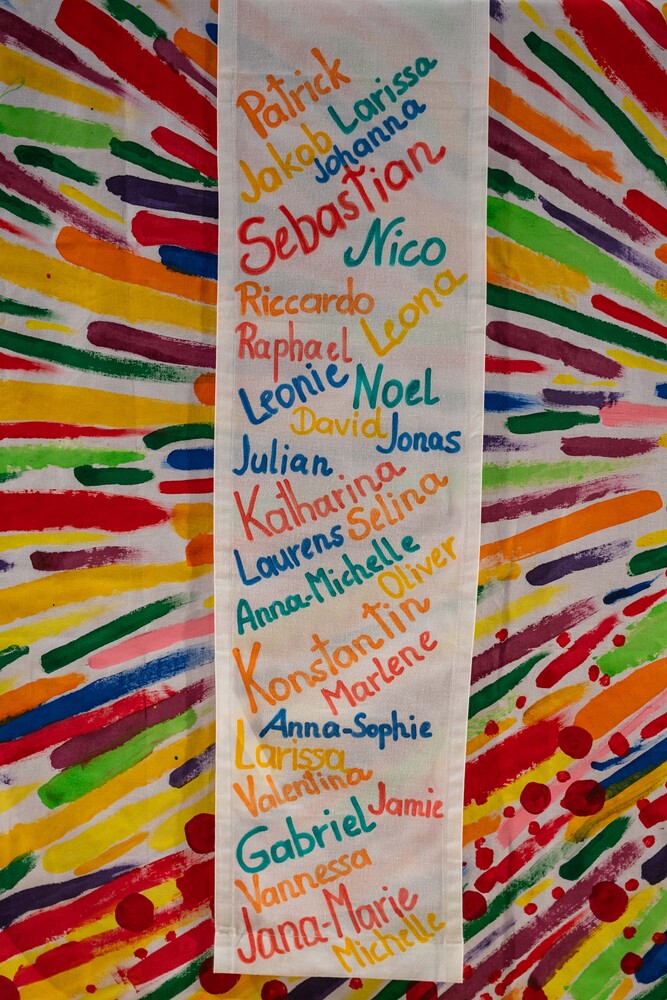 Patrick
Larissa
Jakob
Johanna
Sebastian
Nico
Riccardo
Leona
Raphael
Leonie
Noel
David
Jonas
Julian
Katharina
Selina
Laurens
Anna-Michelle
Oliver
Konstantin
Marlene
Anna-Sophie
Larissa
Valentina
Jamie
Gabriel
Vannessa
Jana-Marie
Michelle